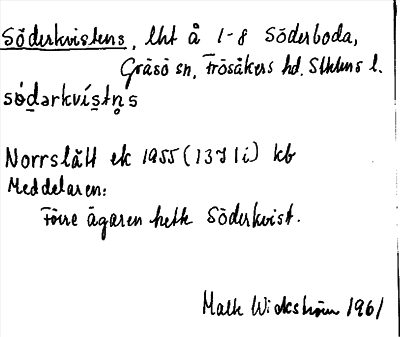 Söderkvistens, lht å 1-8 Söderboda,
Gräsö sn, Frösåkers hd, Sthlms l.
sö́dərkvístn̥s
Norrslått ek 1955 (13J1i) kb
Meddelaren:
Förre ägaren hette Söderkvist.
Malte Wickström 1961